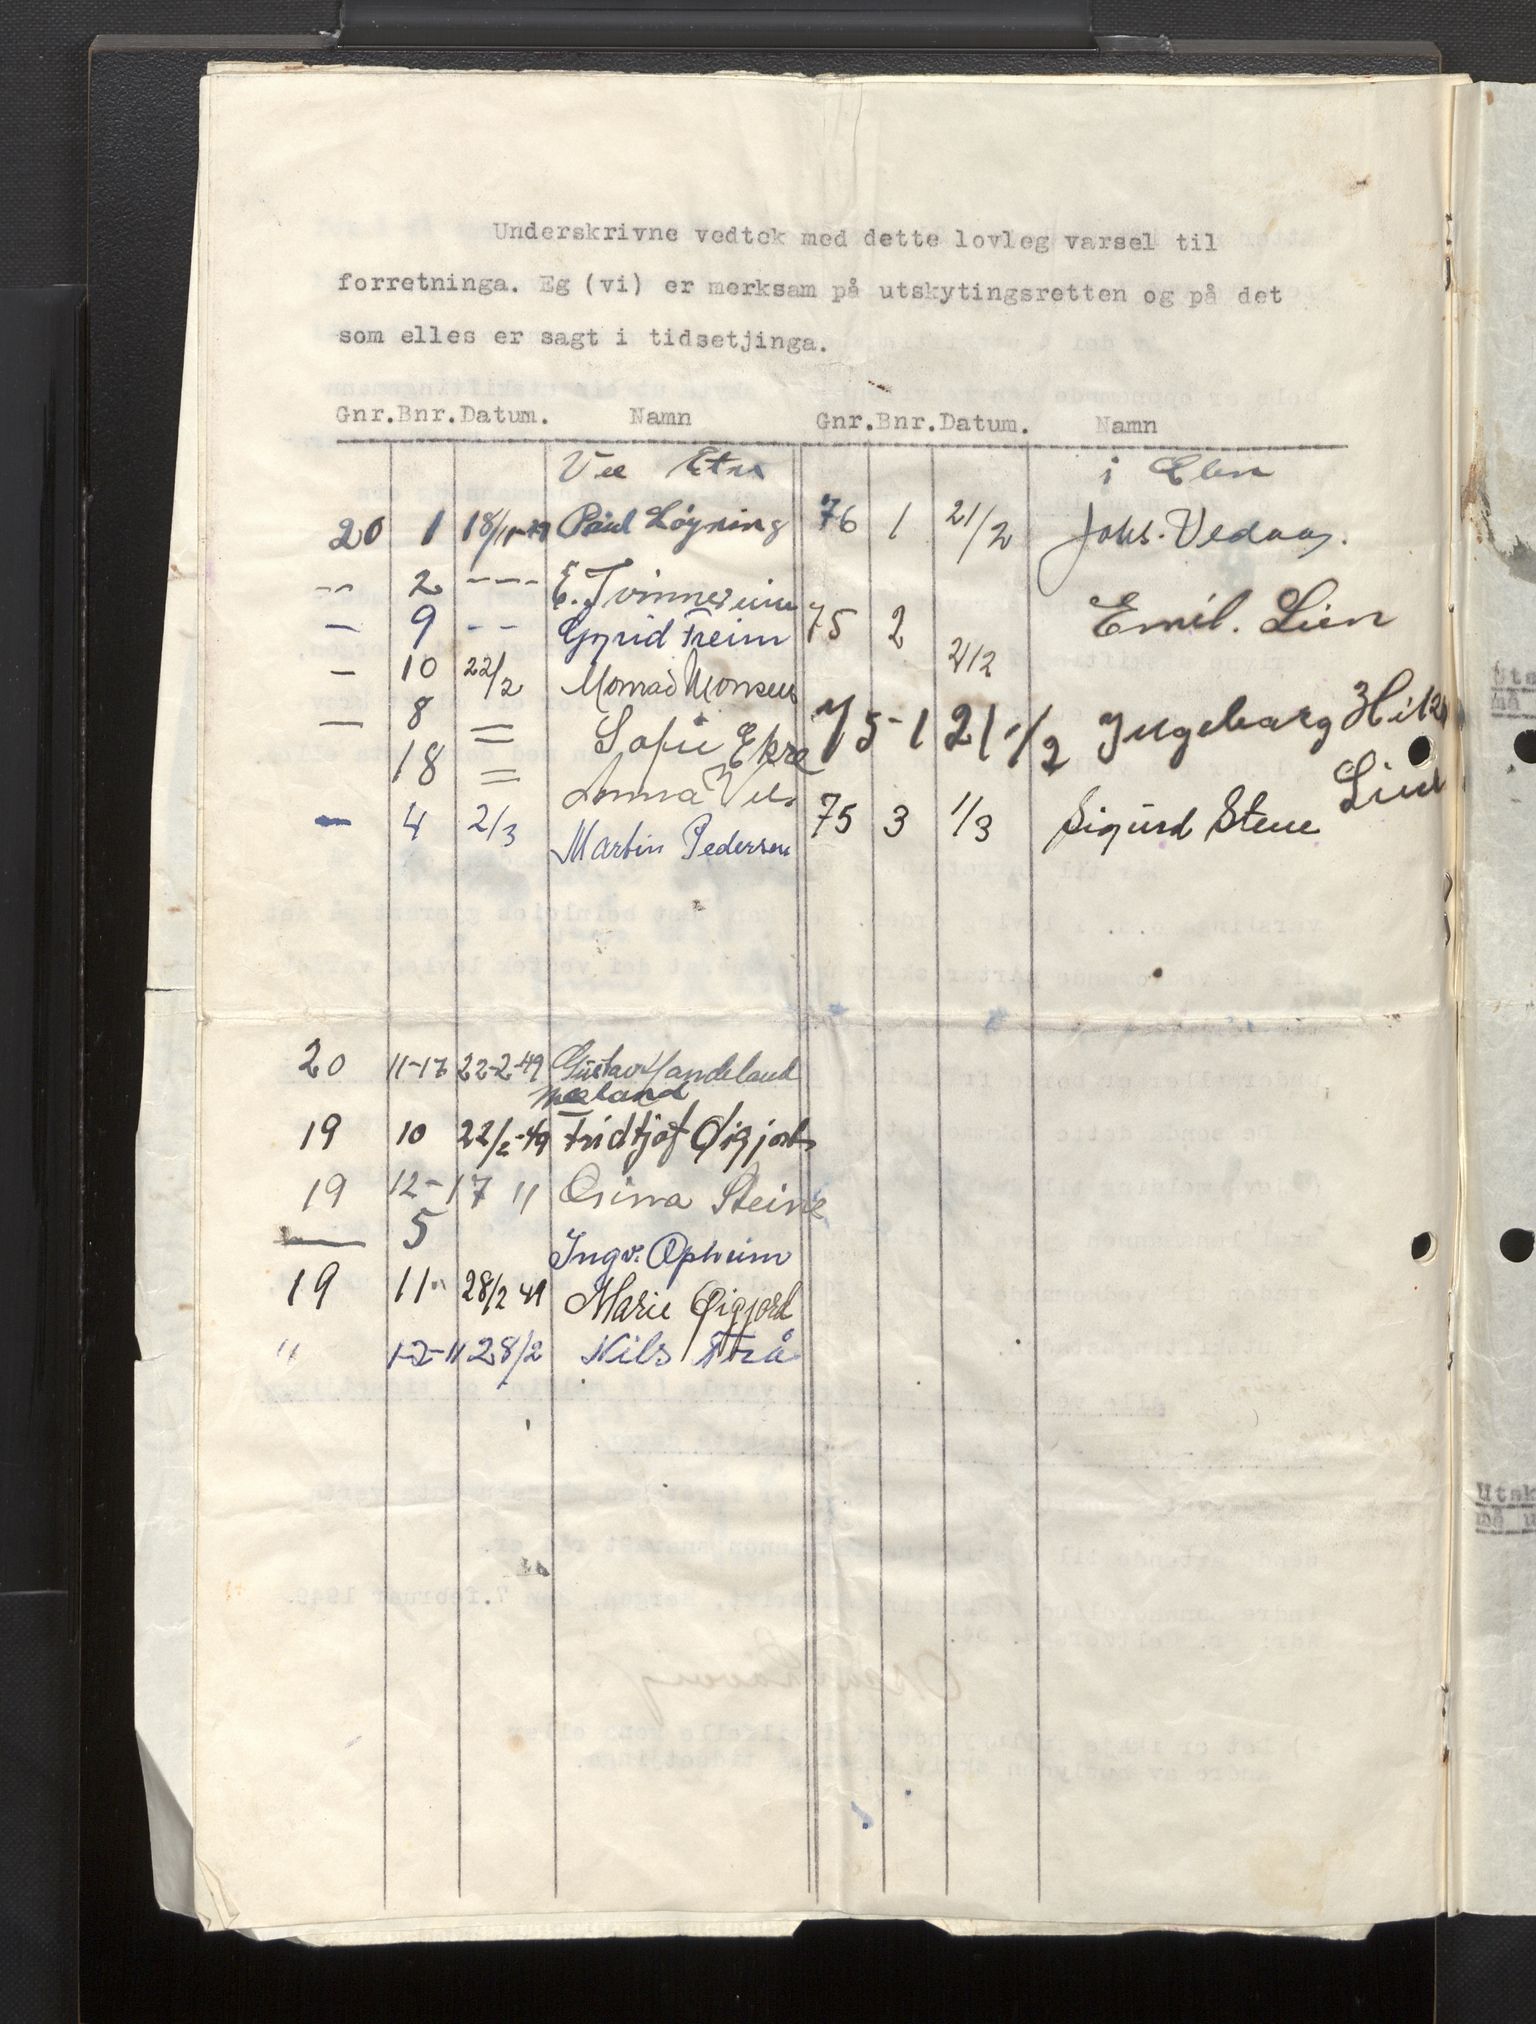 Underskrivne vedtek med dette lovleg varsel til
forretninga. Eg (vi) er merksam på utskytingsretten og på det
som elles er sagt i tidsetjinga.
Gnr. Bnr. Datum. Namn
20 1 18/ Pául Løyning
-- 2 --- E. Tvinnereim
— 9 -- Gyrid Freim
— 10 22/2 Monrad Monsen
— 8 = Sofie Ekre
18 =
— 4 2/3 Martin Pedersen
20 11-17 22-2-49 Gustav
19 10 22/2-49 Fridtjof
19 12-17 " Steine
— 5 Ingv. Opheim
19 11 28/2 49 Marie Øigjord
" 12-11 28/2 Nils
Gnr. Bnr. Datum. Namn
i
76 1 21/2 Johs. Vedaas.
75 2 21/2 Emil. Lien
75-1 21/2 Ingeborg
75 3 1/3 Sigurd Stene